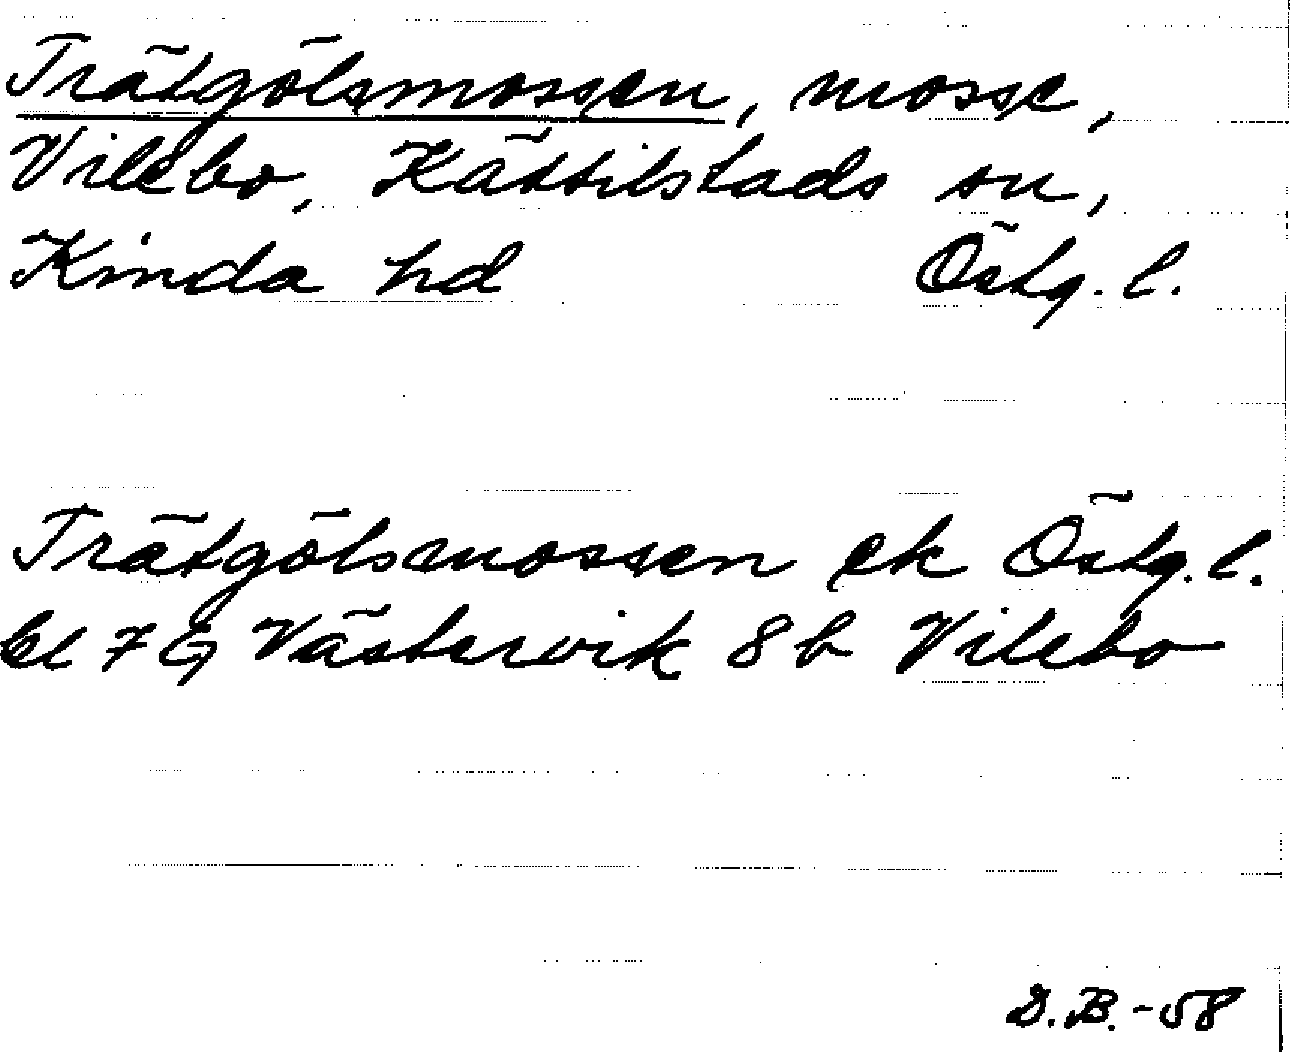 Trätgölsmossen, mosse,
Vilebo, Kättilstads sn,
Kinda hd Östg. l.
Trätgölsmossen ek Östg. l.
bl 7 G Västervik 8 b Vilebo
D.B.-58